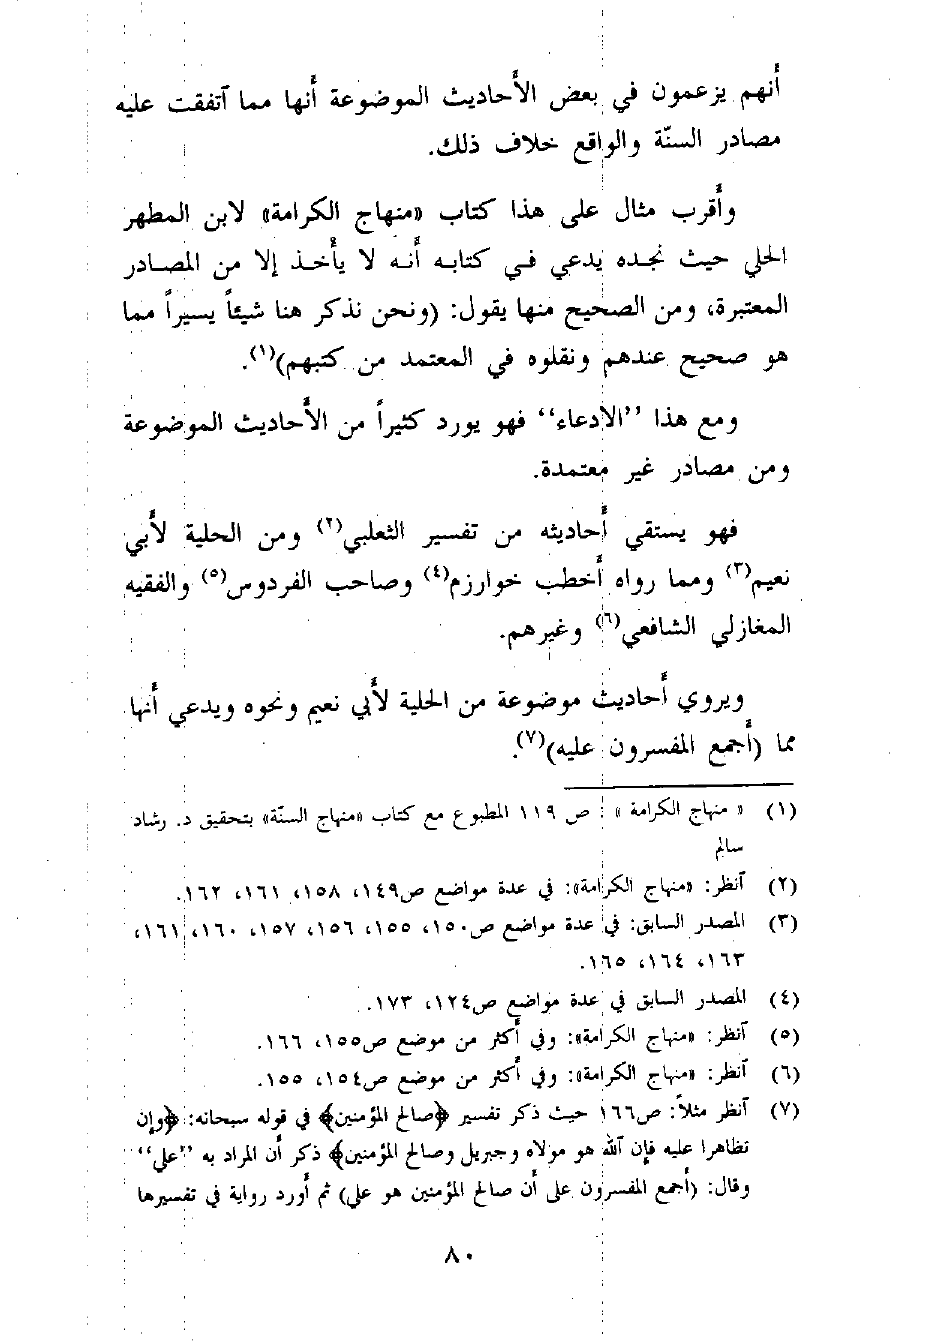 أنهم يزعمون في بعض الأحاديث الموضوعة أنها مما آتفقت عليه
مصادر السنّة والواقع خلاف ذلك.
وأقرب مثال على هذا كتاب «منهاج الكرامة» لابن المطهر
الحلي حيث نجده يدعي في كتابه أنه لا يأخذ إلا من المصادر
المعتبرة، ومن الصحيح منها يقول: (ونحن نذكر هنا شيئاً يسيراً مما
هو صحيح عندهم ونقلوه في المعتمد من كتبهم)(١).
ومع هذا ”الادعاء“ فهو يورد كثيراً من الأحاديث الموضوعة
ومن مصادر غير معتمدة.
فهو يستقي أحاديثه من تفسير الثعلبي(٢) ومن الحلية لأبي
نعيم(٣) ومما رواه أخطب خوارزم(٤) وصاحب الفردوس(٥) والفقيه
المغازلي الشافعي(٦) وغيرهم.
ويروي أحاديث موضوعة من الحلية لأبي نعيم ونحوه ويدعي أنها
مما (أجمع المفسرون عليه)(٧).
(١) «منهاج الكرامة»: ص ١١٩ المطبوع مع كتاب «منهاج السنّة» بتحقيق د. رشاد
سالم
(٢) آنظر: «منهاج الكرامة»: في عدة مواضع ص١٤٩، ١٥٨، ١٦١، ١٦٢.
(٣) المصدر السابق: في عدة مواضع ص١٥٠، ١٥٥، ١٥٦، ١٥٧، ١٦٠، ١٦١،
١٦٣، ١٦٤، ١٦٥.
(٤) المصدر السابق في عدة مواضع ص١٢٤، ١٧٣.
(٥) آنظر: «منهاج الكرامة»: وفي أكثر من موضع ص١٥٥، ١٦٦.
(٦) آنظر: «منهاج الكرامة»: وفي أكثر من موضع ص١٥٤، ١٥٥.
(٧) آنظر مثلاً: ص١٦٦ حيث ذكر تفسير ﴿صالح المؤمنين﴾ في قوله سبحانه: ﴿وإن
تظاهرا عليه فإن آلله هو مولاه وجبريل وصالح المؤمنين﴾ ذكر أن المراد به ”علي“
وقال: (أجمع المفسرون على أن صالح المؤمنين هو علي) ثم أورد رواية في تفسيرها
٨٠